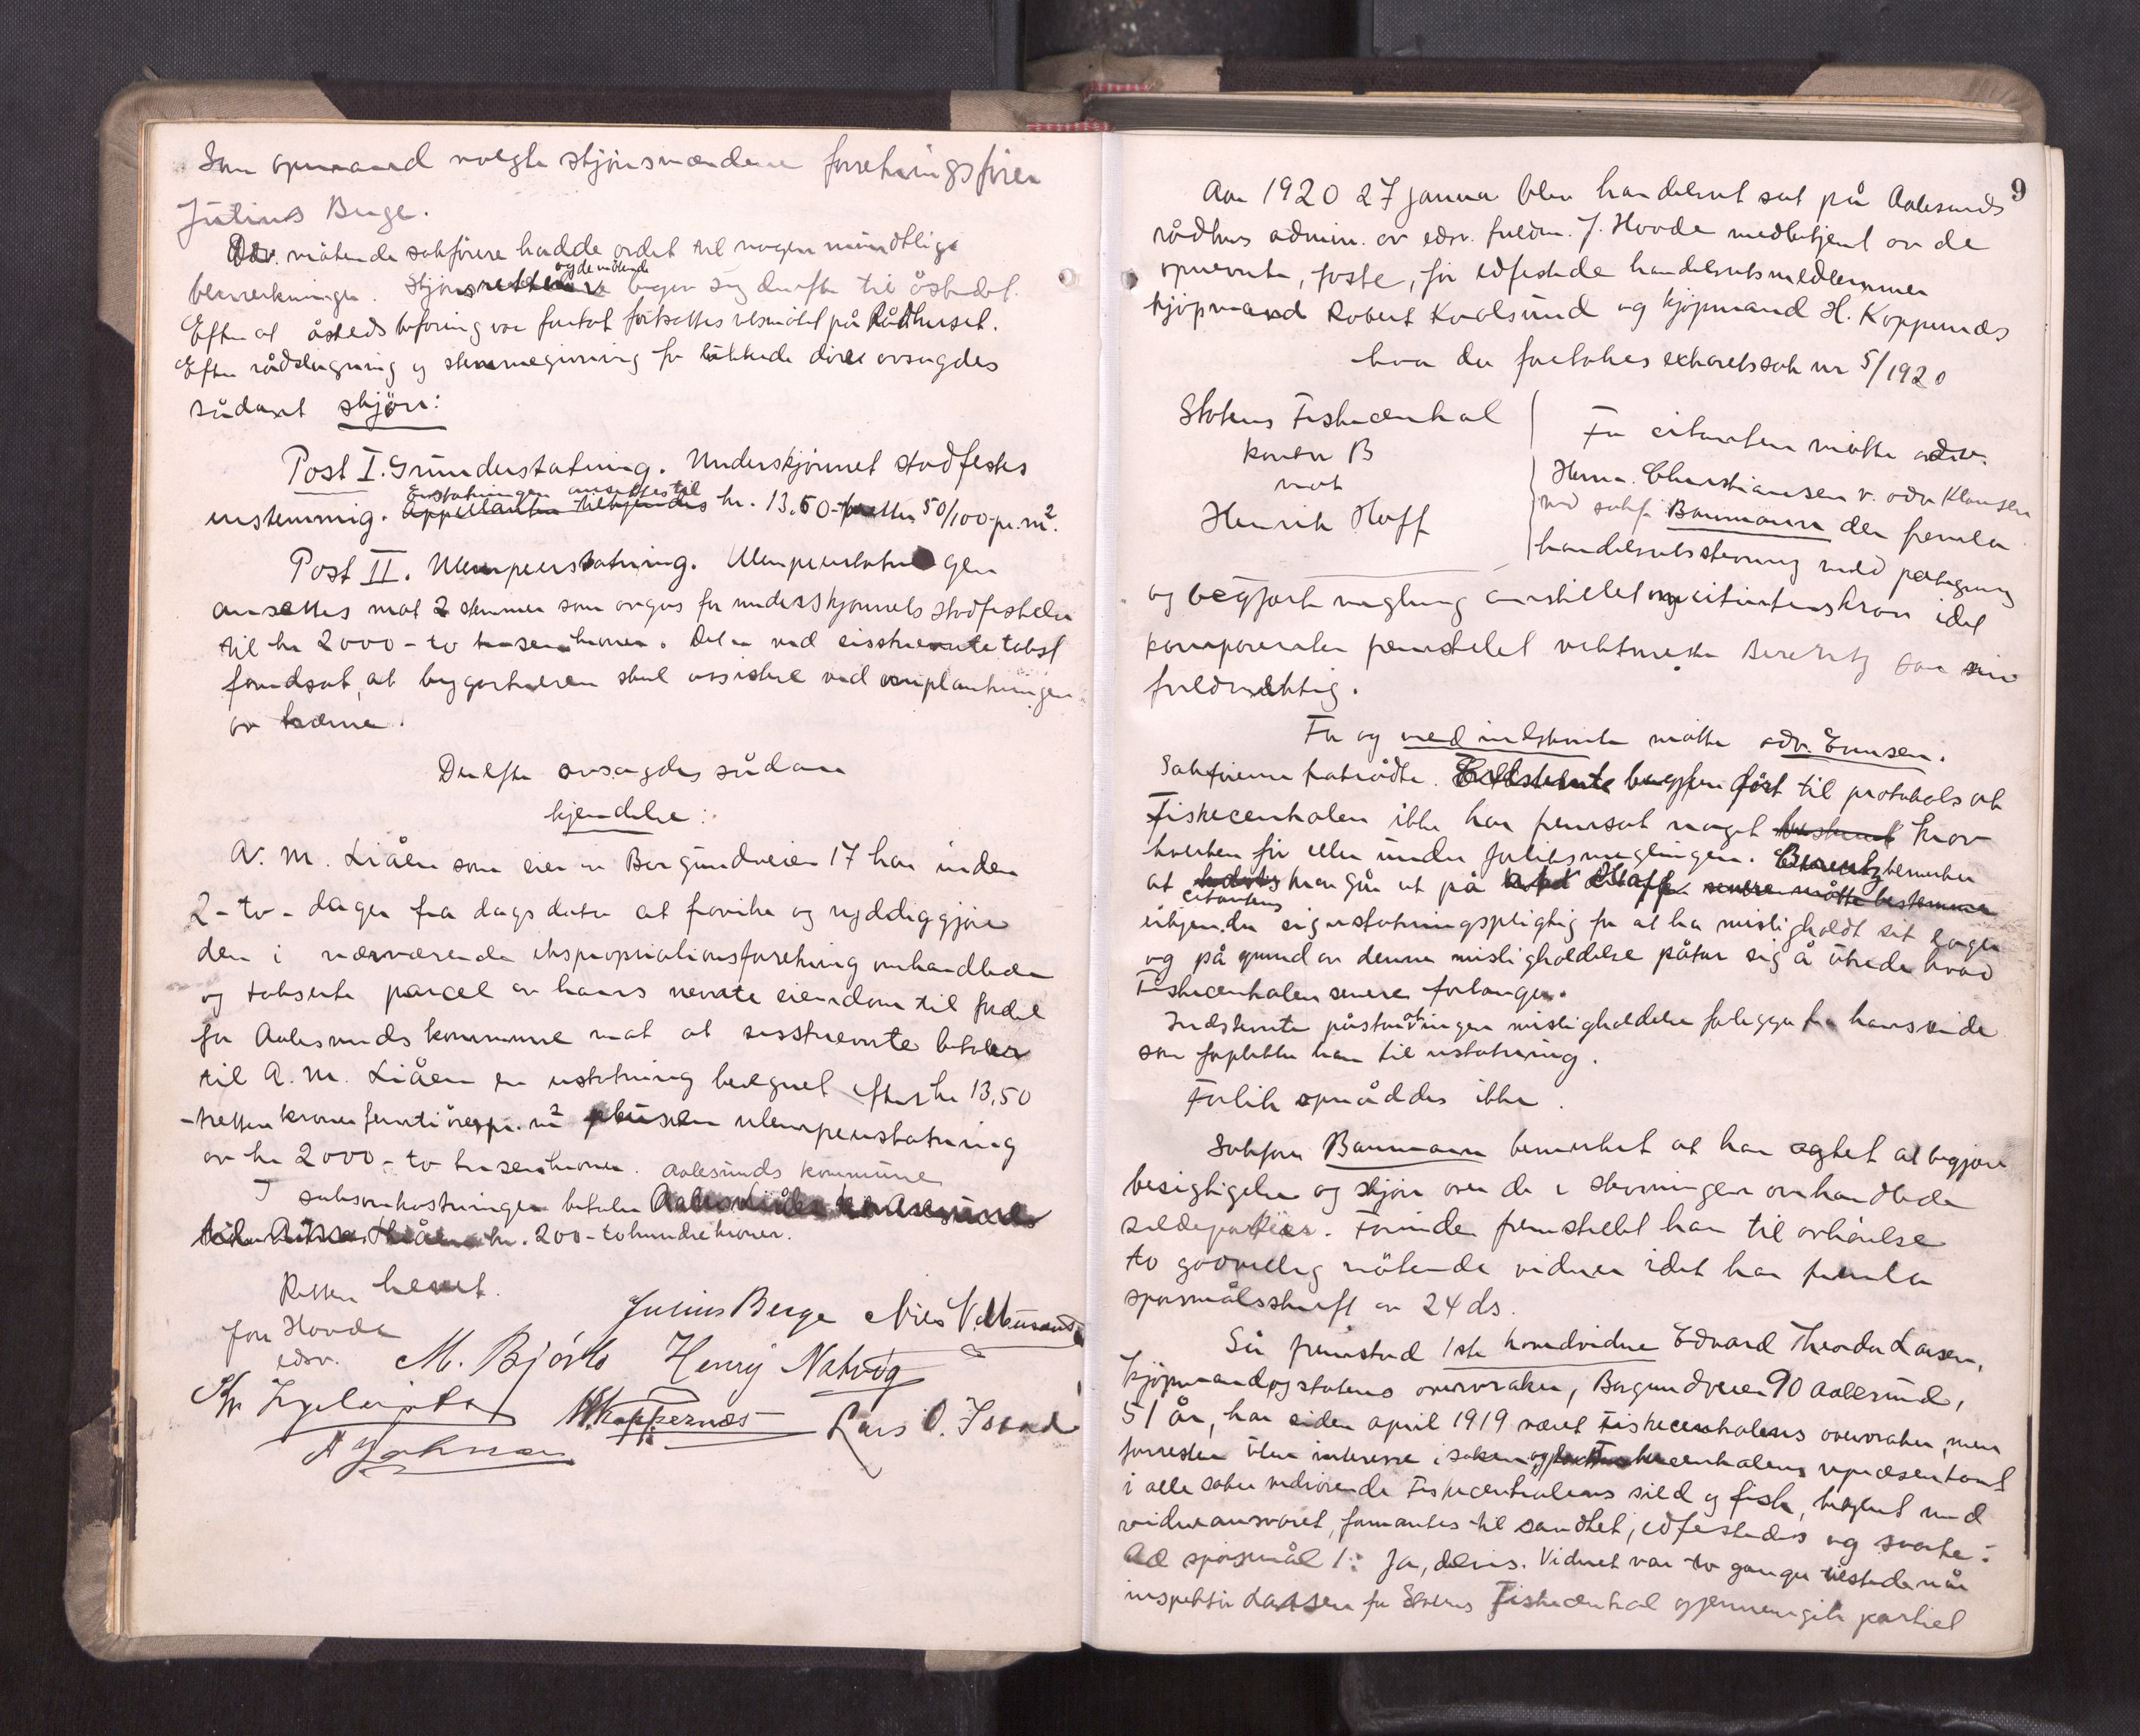 Som opmand valgte skjönsmændene forretningsförer
Julius Berge.
De mötende sakförere hadde ordet til nogen mundtlige
bemerkninger. Skjönsretten og de mötende begav sig derefter til åstedet.
Efter at åstedsbefaring var foretat fortsattes retsmötet på Rådhuset.
Efter rådslagning og stemmegivning for lukkede döre avsagdes
sådant skjön:
Post I. Grunderstatning. Underskjönnet stadfestes
enstemmig. Erstatningen ansettes til kr. 13.50 - tretten 50/100 - pr. m².
Post II. Ulempeerstatning. Ulempeerstatningen
ansættes mot 2 stemmer som avgis for underskjönnets stadfestelse
til kr 2000 - to tusen kroner. Det er ved sisstnevnte takst
forudsat, at bygartneren skal assistere ved omplantningen
av trærne.
Derefter avsagdes sådan
kjendelse:
A. M. Liåen som eier av Borgundveien 17 har inden
2 - to - dager fra dags dato at fravike og ryddiggjöre
den i nærværende ekspropriationsforretning omhandlede
og takserte parcel av hans nevnte eiendom til fordel
for Aalesunds kommune mot at sisstnevnte betaler
til A. M. Liåen en erstatning beregnet efter kr 13,50
- tretten kroner femti öre pr. m² plus en ulempeerstatning
av kr 2000 - to tusen kroner.
I saksomkostninger betaler Aalesunds kommune
til A. M. Liåen kr. 200 - tohundre kroner.
Retten hevet.
Jon Hovde
edsv.
Julius Berge Nils V.
M. Björlo Henry Natvig
H. Koppernæs Lars O.
9
Aar 1920 27 januar blev handelsret sat på Aalesunds
rådhus admin. av edsv. fuldm. J. Hovde medbetjent av de
opnevnte, faste, för edfestede handelsretsmedlemmer
kjöpmand Robert Kvalsund og kjöpmand H. Koppernæs
hvor da foretokes extraretssak nr 5/1920
Statens Fiskecentral
kontor B
mot
Henrik Hoff
For citanten mötte adv.
Herm. Christiansen v. adv Klausen
ved sakf. Baumann der fremla
handelsretsstevning med pategning
og begjærte megling anstillet citantens krav idet
komparenten fremstillet Berentz som sin
fuldmægtig.
For og med indstevnte mötte adv. Evensen.
Sakförerne fratrådte. Indstevnte begjær fört til protokols at
Fiskecentralen ikke har fremsat noget bestemt krav
hverken för eller under forliksmeglingen. Berentz bemerker
at citantens krav går ut på at Hoff
erkjender sig erstatningspligtig for at ha misligholdt sit lager
og på grund av denne misligholdelse påtar sig å utrede hvad
Fiskecentralen senere forlanger.
Indstevnte påstår at ingen misligholdelse foreligger fra hans side
som forplikter ham til erstatning.
Forlik opnåddes ikke.
Sakförer Baumann bemerket at han agtet at begjære
besigtigelse og skjön over de i stevningen omhandlede
sildepartier. Forinden fremstillet han til avhörelse
to godvillig mötende vidner idet han fremla
spörsmålsskrift av 24 ds.
Så fremstod 1ste hovedvidne Edvard Theodor Larsen,
kjöpmand og statens overvraker, Borgundveien 90 Aalesund,
51 år, har siden april 1919 været Fiskecentralens overvraker, men
forresten uten interesse i saken og Fiskecentralens repræsentant
i alle saker vedrörende Fiskecentralens sild og fisk, begjent med
vidneansvaret, formantes til sandhet, edfestedes og svarte:
Ad spörsmål 1: Ja, delvis. Vidnet var to ganger tilstede når
inspektör Larsen for Statens Fiskecentral gjennemgik partiet